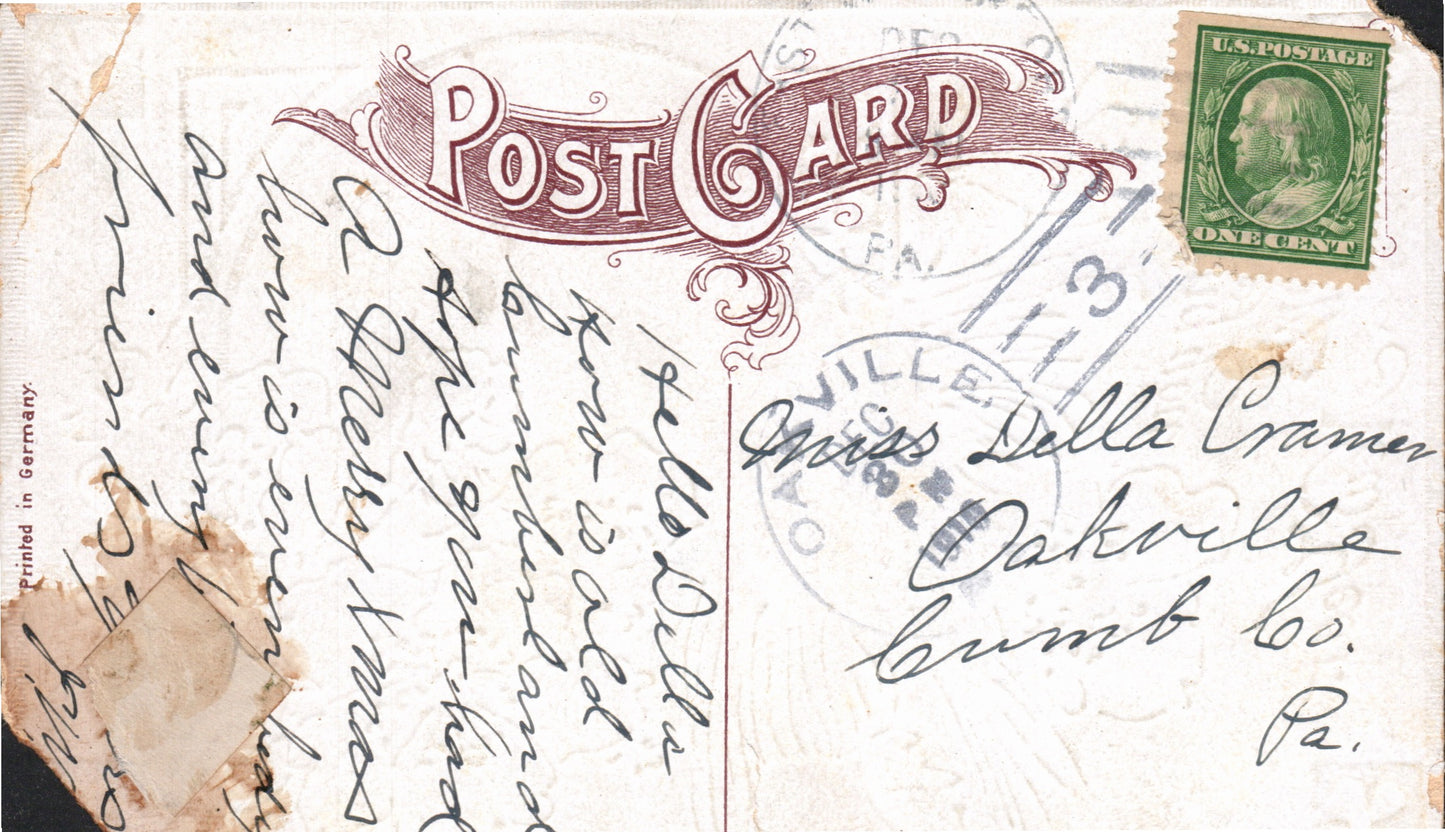 POST CARD
U.S. POSTAGE
ONE CENT
DEC
PA.
3
OAKVILLE
DEC
30
PM
1910
Miss Della Cramer
Oakville
Cumb Co.
Pa.
Hello Della
how is old
Cumberland
hope you had
A Merry Xmas
how is everybody
and every
friend
Printed in Germany.